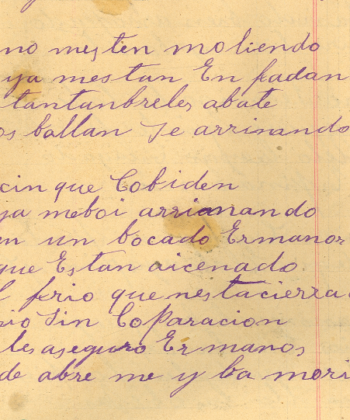 no mesten moliendo
ya mestan En fadan
tantanbreles abate
os ballan se arrimando
cin que Cobiden
ja meboi arrimando
en un bocado Ermanos
que Estan aicenado
l frio que nestacierra
io Sin Coparacion
les aseguro Ermanos
de abre me y ba mori